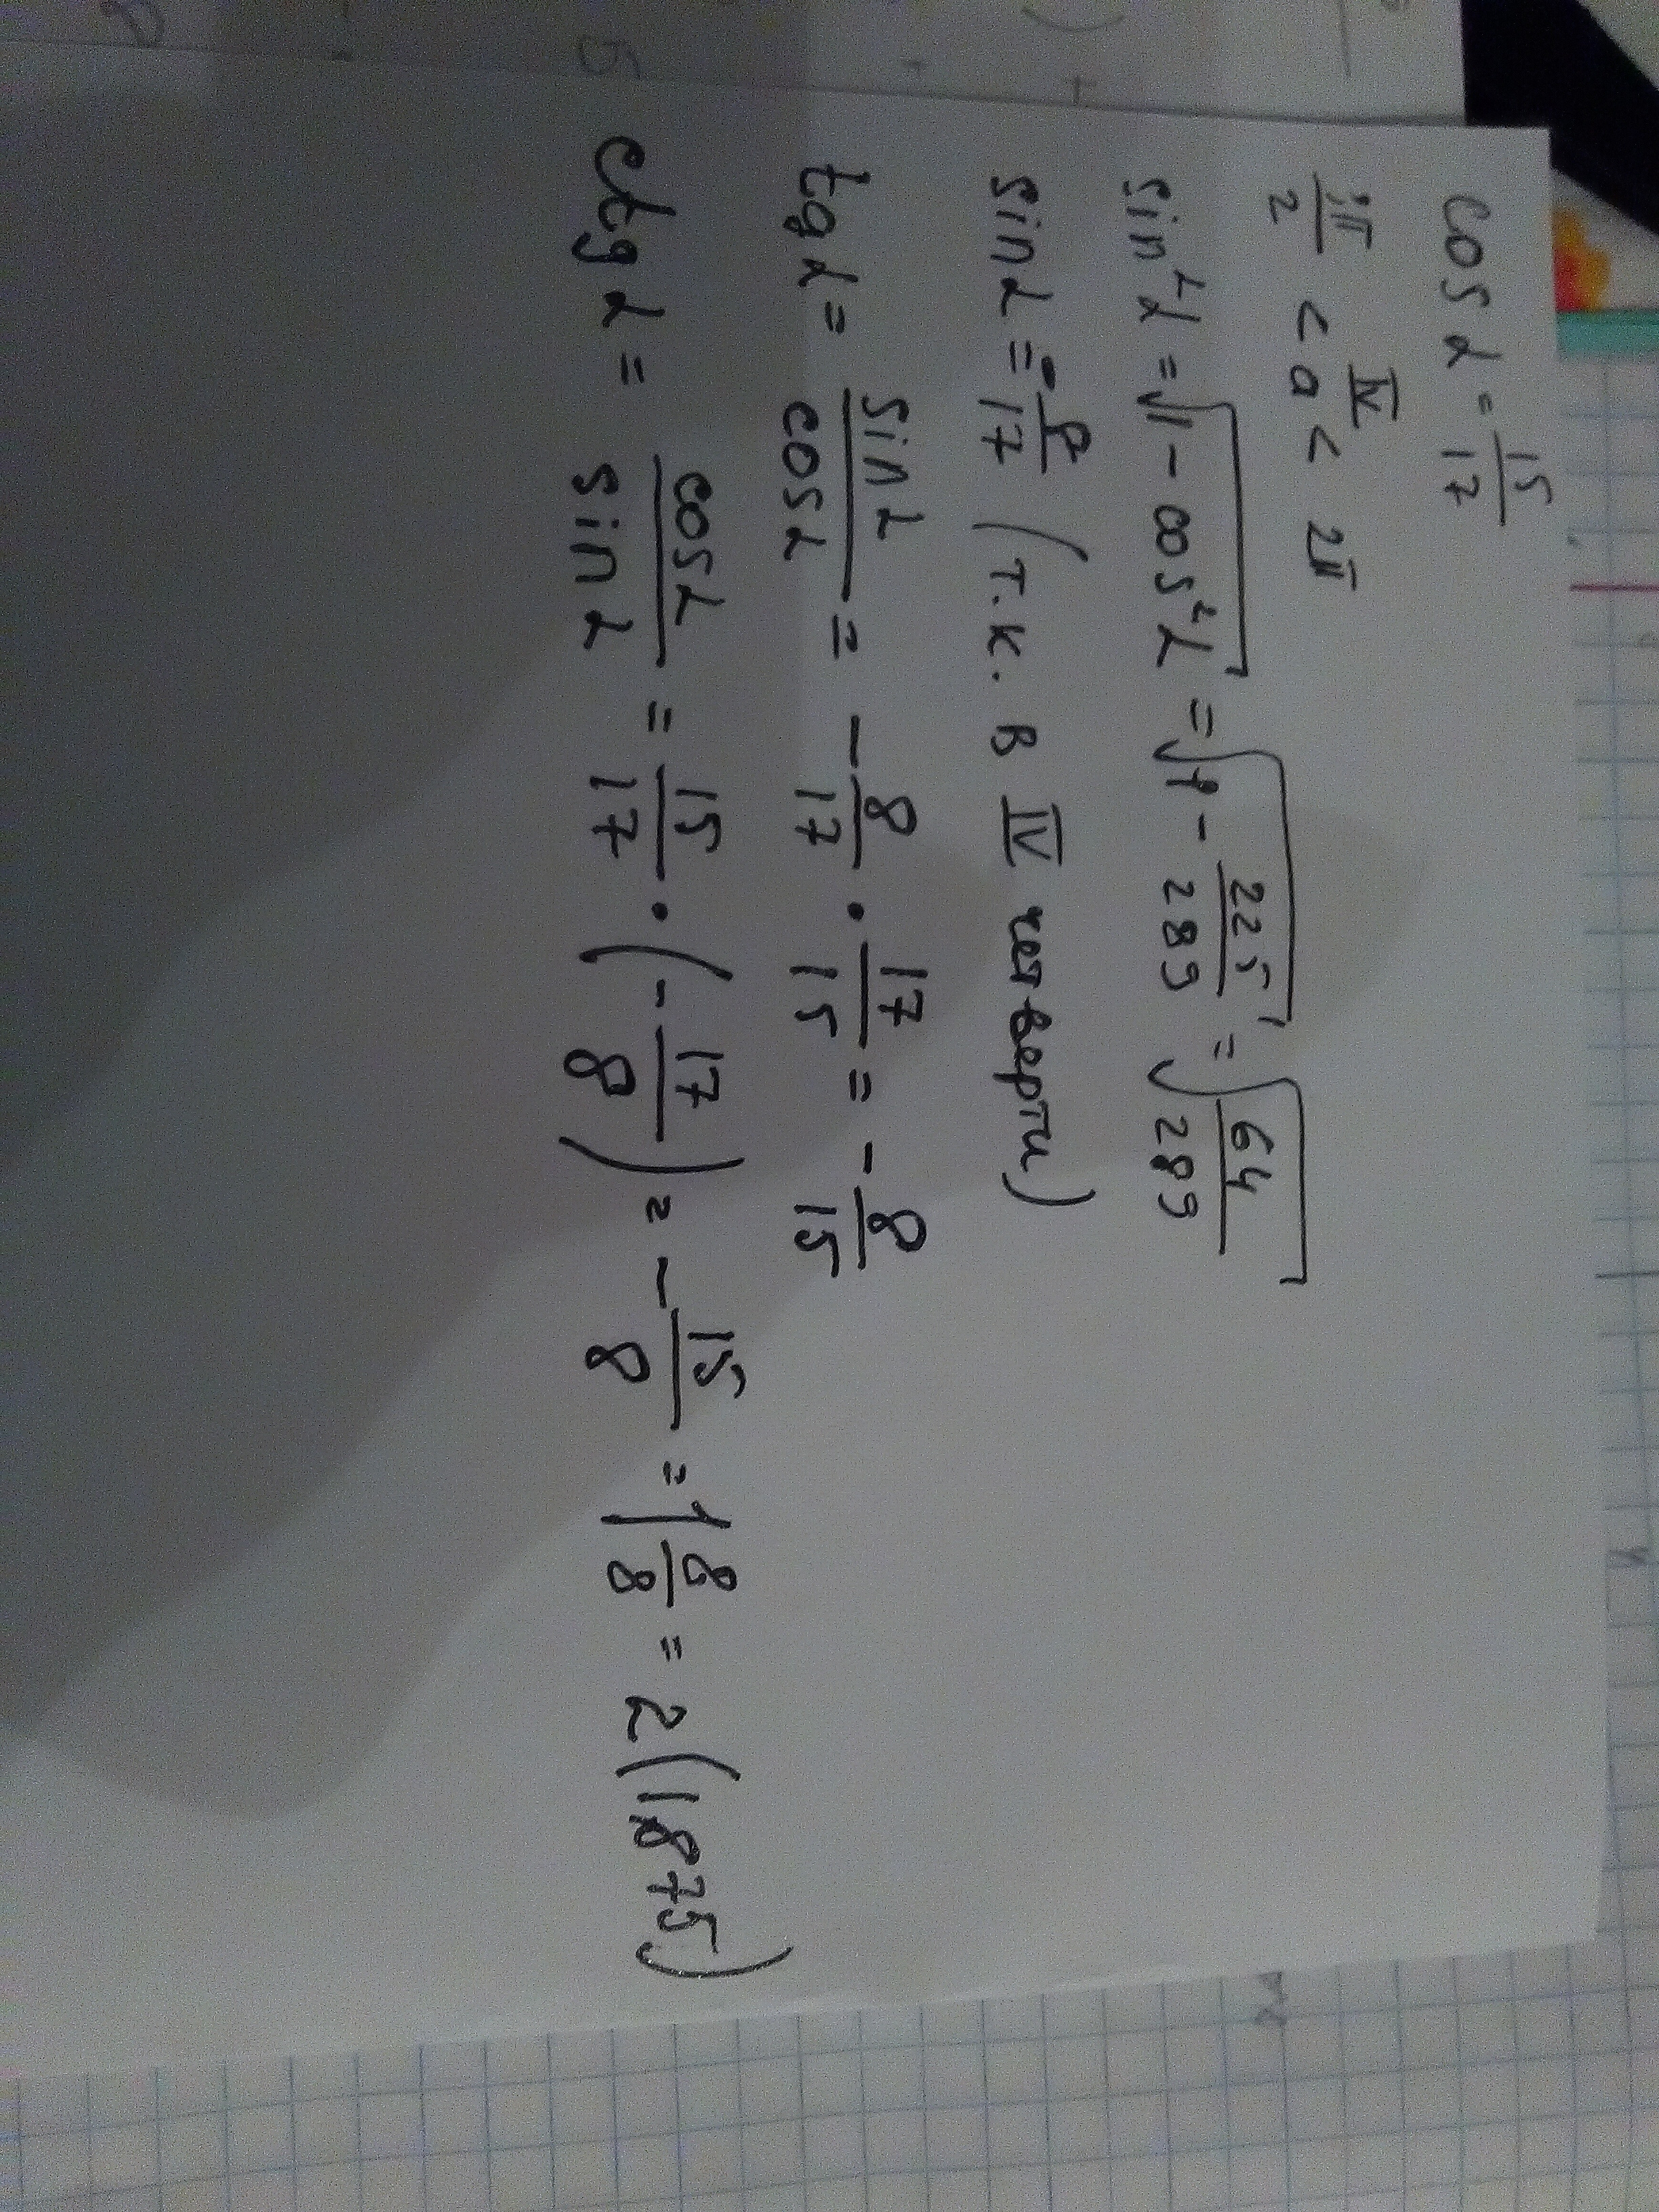 cos α = 15/17
3π/2 < a < 2π IV
sin²α = √(1 - cos²α) = √(1 - 225/289) = √(64/289)
sin α = -8/17 (т.к. в IV четверти)
tg α = sin α/cos α = - 8/17 · 17/15 = - 8/15
ctg α = cos α/sin α = 15/17 · (- 17/8) = - 15/8 = 1 8/8 = 2 (1,875)